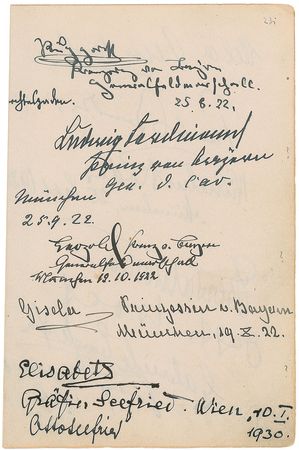 Rupprecht
Kronprinz von Bayern
Generalfeldmarschall.
25.8.22.
Ludwig Ferdinand
Prinz von Bayern
Gen. d. Cav.
München
25.9.22.
Leopold Prinz v. Bayern
Generalfeldmarschall
München 12.10.1922
Gisela Prinzessin v. Bayern
München, 19.X.22.
Elisabeth
Gräfin Seefried. Wien, 10.I.
Otto Seefried 1930.